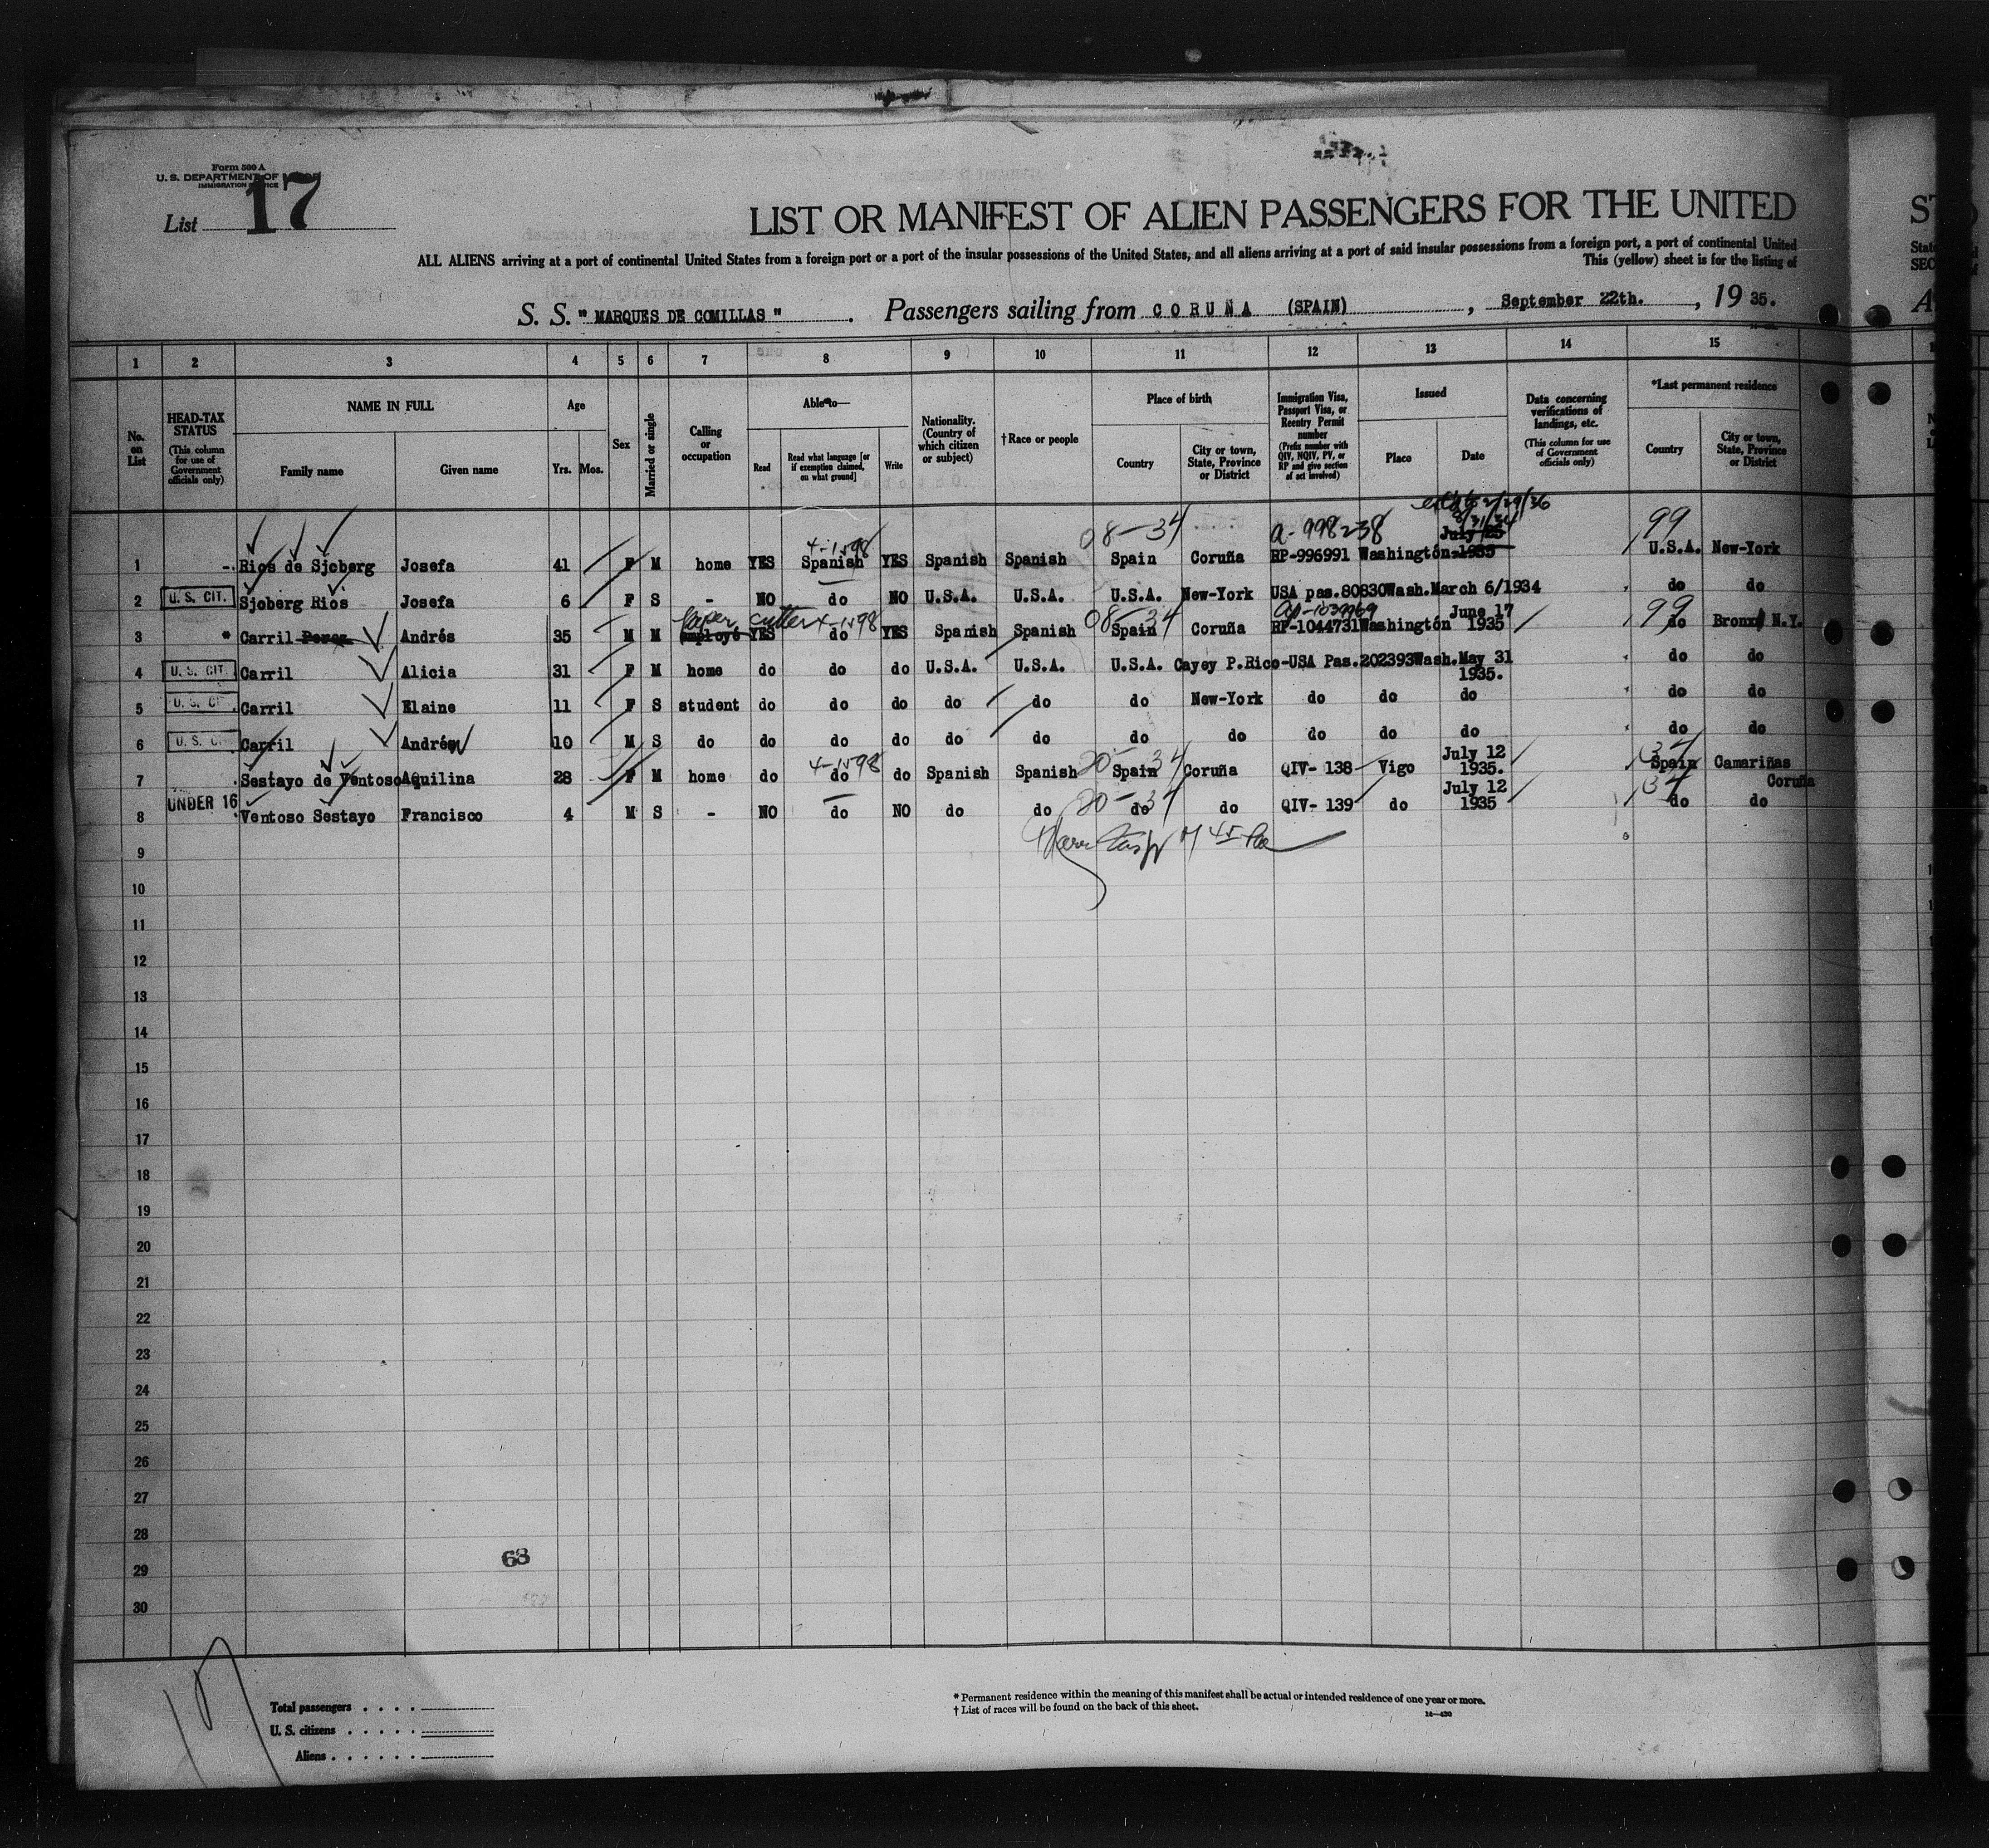 Form 500 A
U. S. DEPARTMENT OF
IMMIGRATION
List 17
LIST OR MANIFEST OF ALIEN PASSENGERS FOR THE UNITED
ALL ALIENS arriving at a port of continental United States from a foreign port or a port of the insular possessions of the United States, and all aliens arriving at a port of said insular possessions from a foreign port, a port of continental United
This (yellow) sheet is for the listing of
S. S. " MARQUES DE COMILLAS " . Passengers sailing from CORUÑA (SPAIN) , September 22th. , 19 35.
1 2 3 4 5 6 7 8 9 10 11 12 13 14 15
No. on List
HEAD-TAX STATUS (This column for use of Government officials only)
NAME IN FULL Family name Given name
Age Yrs. Mos.
Sex
Married or single
Calling or occupation
Able to— Read Read what language [or if exemption claimed, on what ground] Write
Nationality. (Country of which citizen or subject)
†Race or people
Place of birth Country City or town, State, Province or District
Immigration Visa, Passport Visa, or Reentry Permit number (Prefix number with QIV, NQIV, PV, or RP and give section of act involved)
Issued Place Date
Data concerning verifications of landings, etc. (This column for use of Government officials only)
*Last permanent residence Country City or town, State, Province or District
4-1598 08-34 a-998238 2/29/36 99
1 Rios de Sjoberg Josefa 41 F M home YES Spanish YES Spanish Spanish Spain Coruña RP-996991 Washington July 25 1935 U.S.A. New-York
2 U. S. CIT. Sjoberg Rios Josefa 6 F S - NO do NO U.S.A. U.S.A. U.S.A. New-York USA pas.80830 Wash. March 6/1934 do do
cutter 4-1598 08-34 99
3 * Carril Perez Andrés 35 M M employé YES do YES Spanish Spanish Spain Coruña RP-1044731 Washington June 17 1935 do Bronx N.Y.
4 U. S. CIT. Carril Alicia 31 F M home do do do U.S.A. U.S.A. U.S.A. Cayey P.Rico- USA Pas.202393 Wash. May 31 1935. do do
5 U. S. CI Carril Elaine 11 F S student do do do do do do New-York do do do do do
6 U. S. C Carril Andrés 10 M S do do do do do do do do do do do do do
4-1598 34
7 Sestayo de Ventoso Aquilina 28 F M home do do do Spanish Spanish Spain Coruña QIV- 138 Vigo July 12 1935. Spain Camariñas Coruña
34
8 UNDER 16 Ventoso Sestayo Francisco 4 M S - NO do NO do do do do QIV- 139 do July 12 1935 do do
9
10
11
12
13
14
15
16
17
18
19
20
21
22
23
24
25
26
27
28
29
30
63
Total passengers
U. S. citizens
Aliens
* Permanent residence within the meaning of this manifest shall be actual or intended residence of one year or more.
† List of races will be found on the back of this sheet.
14—430